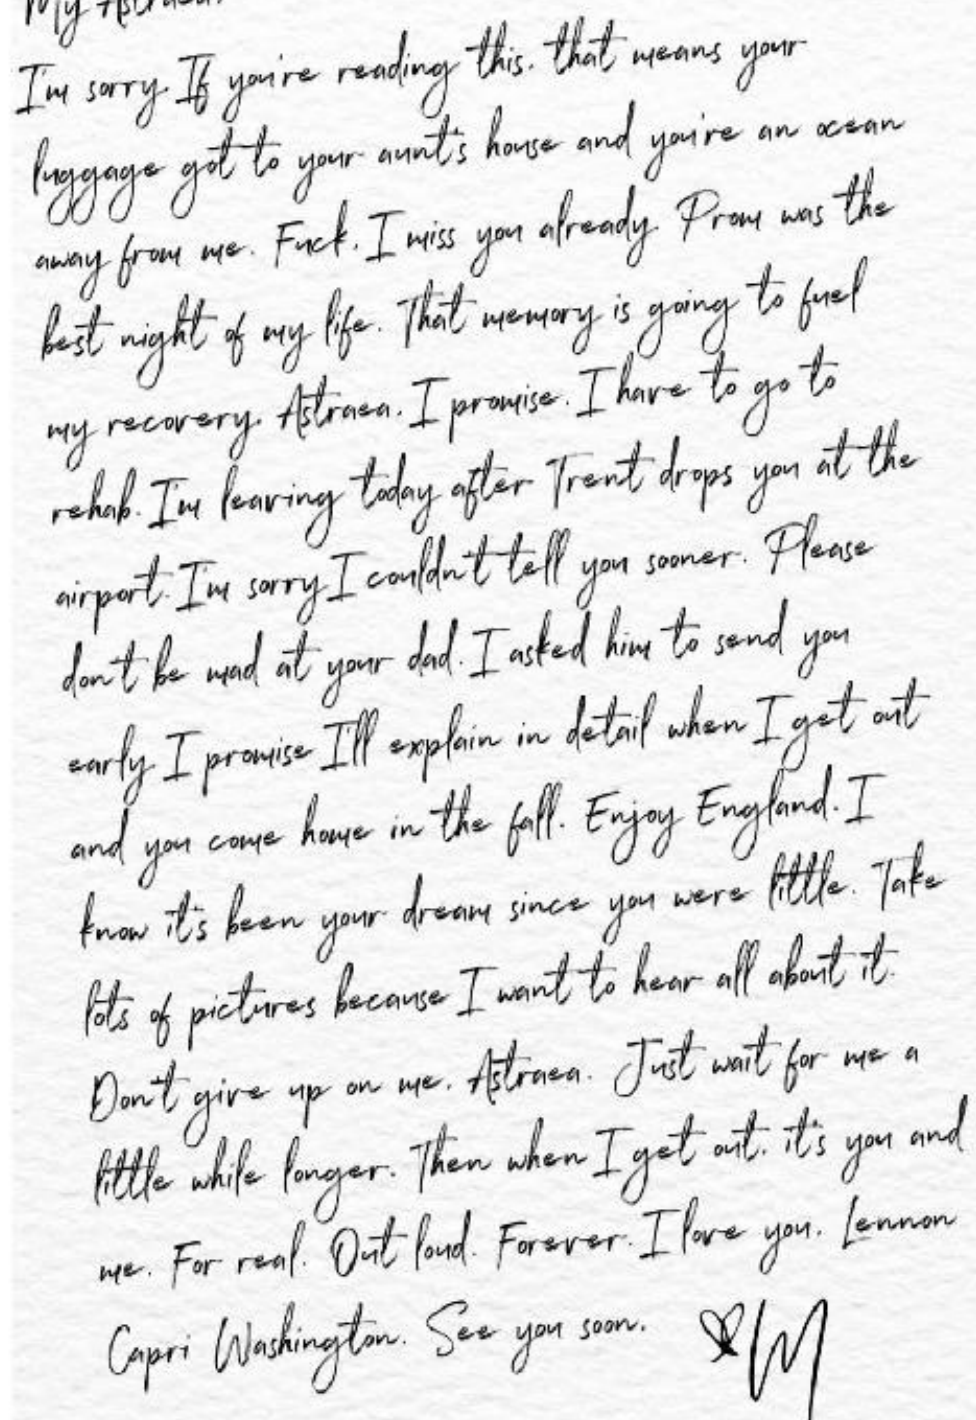 My Astraea.
I'm sorry. If you're reading this, that means your
luggage got to your aunt's house and you're an ocean
away from me. Fuck, I miss you already. Prom was the
best night of my life. That memory is going to fuel
my recovery, Astraea. I promise. I have to go to
rehab. I'm leaving today after Trent drops you at the
airport. I'm sorry I couldn't tell you sooner. Please
don't be mad at your dad. I asked him to send you
early. I promise I'll explain in detail when I get out
and you come home in the fall. Enjoy England. I
know it's been your dream since you were little. Take
lots of pictures because I want to hear all about it.
Don't give up on me, Astraea. Just wait for me a
little while longer. Then when I get out, it's you and
me. For real. Out loud. Forever. I love you, Lennon
Capri Washington. See you soon.
♡M